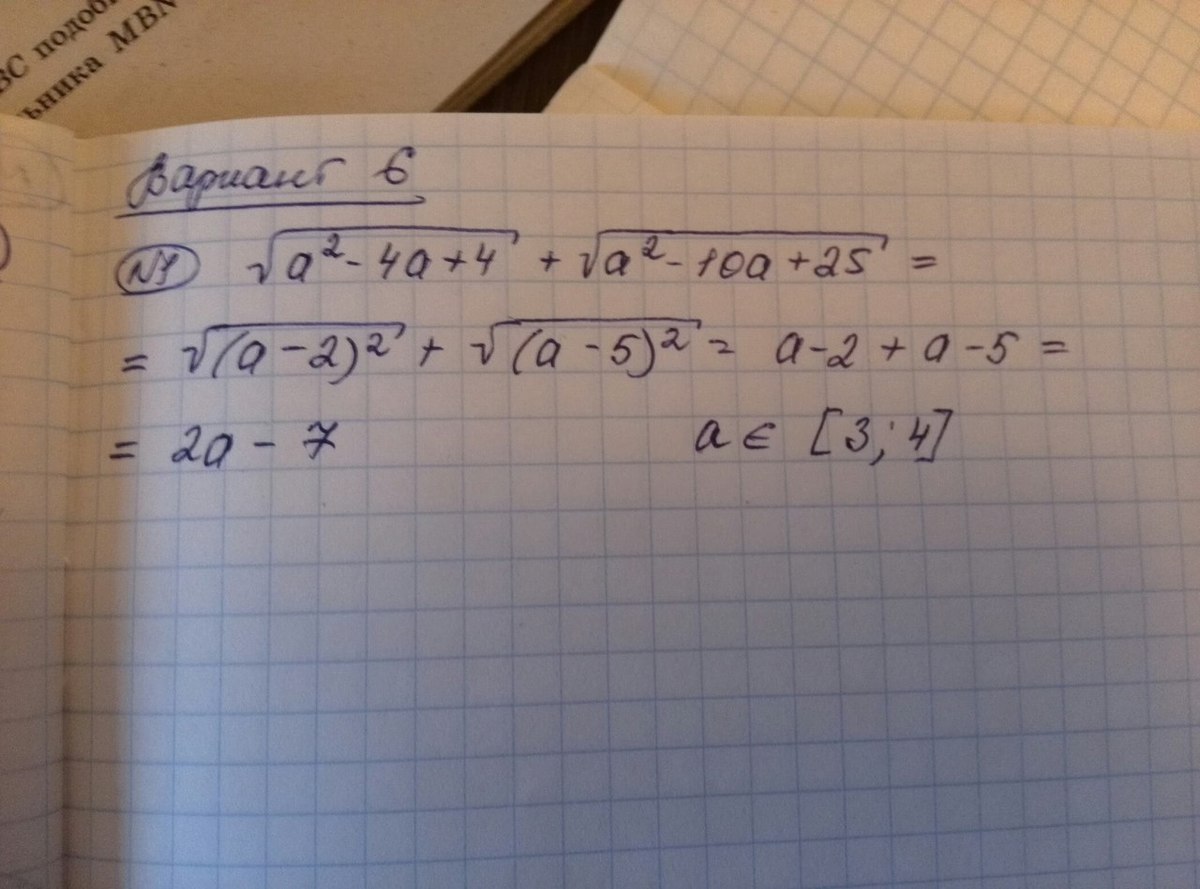 ВС подоб
ьника MBN
Вариант 6
№1 √(a² - 4a + 4) + √(a² - 10a + 25) =
= √(a - 2)² + √(a - 5)² = a - 2 + a - 5 =
= 2a - 7 a ∈ [3; 4]